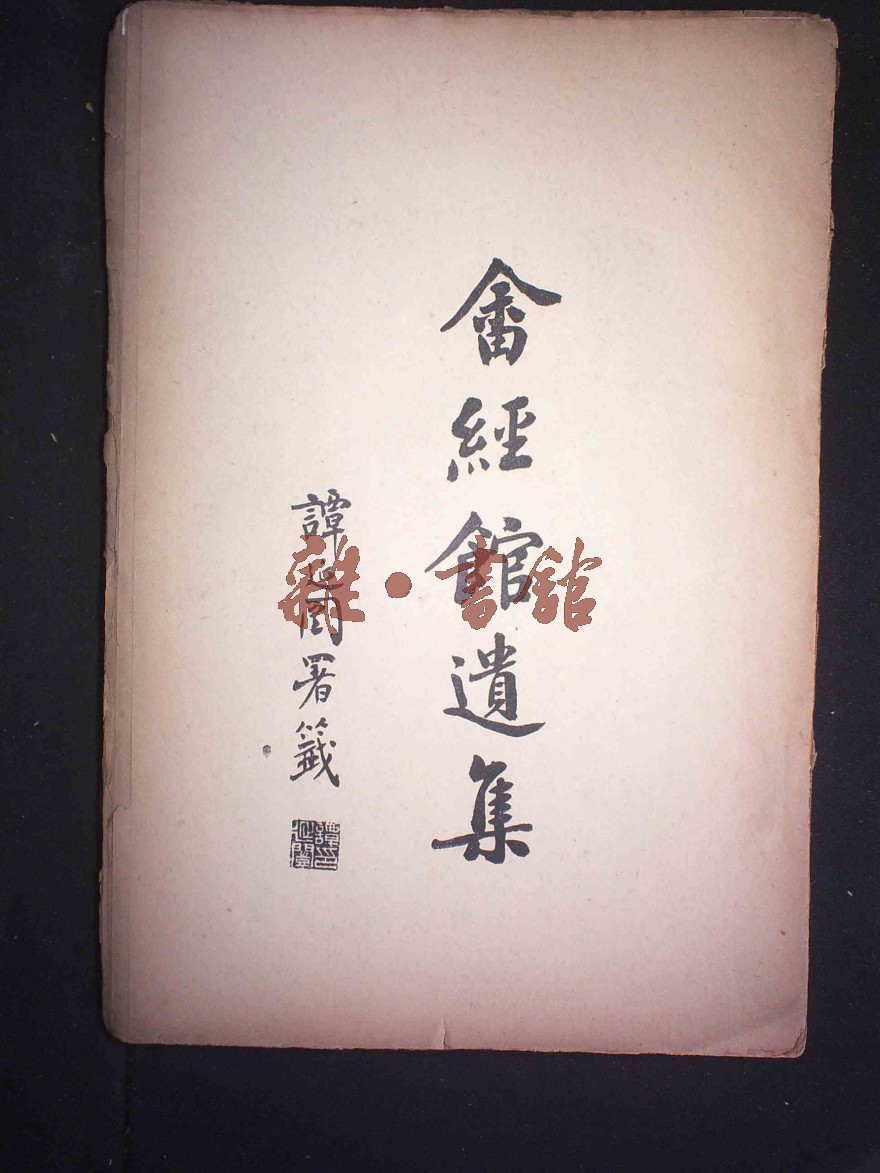 畬經館遺集
譚延闓署籤
譚延闓印
雜·書館